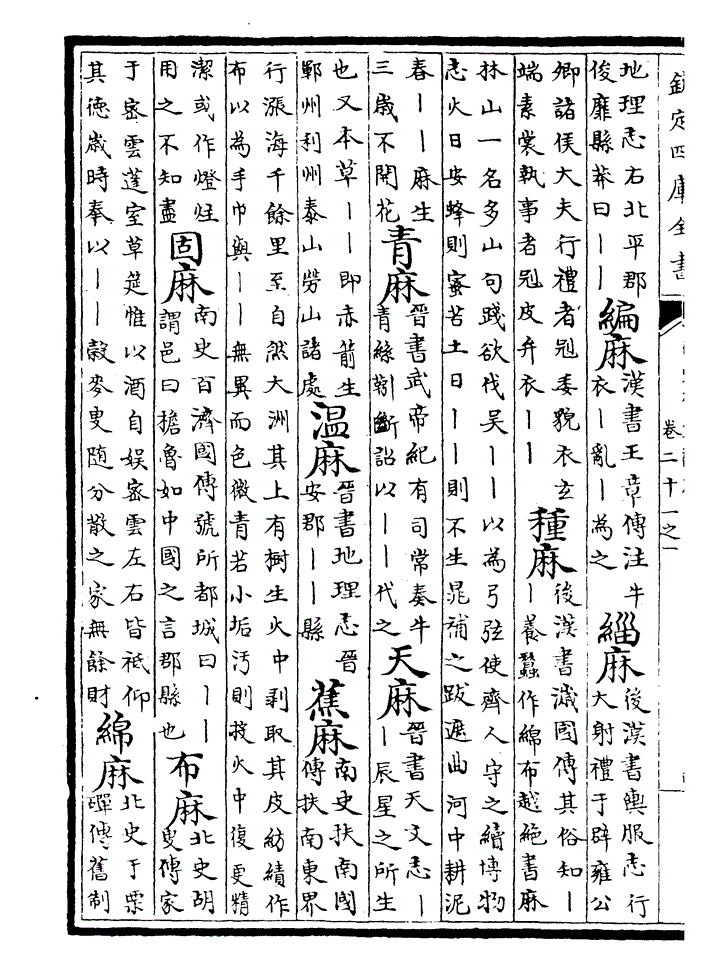 欽定四庫全書
卷二十一之一
地理志右北平郡
俊靡縣莽曰｜｜
編麻
漢書王章傳注牛
衣｜亂｜為之
緇麻
後漢書輿服志行
大射禮于辟雍公
卿諸侯大夫行禮者冠委貌衣玄
端素裳執事者冠皮弁衣｜｜
種麻
後漢書濊國傳其俗知｜
｜養蠶作綿布越絕書麻
林山一名多山句踐欲伐吳｜｜以為弓弦使齊人守之續博物
志火日安蜂則蜜苦土日｜｜則不生晁補之跋遮曲河中耕泥
春｜｜麻生
三歲不開花
青麻
晉書武帝紀有司常奏牛
青絲靷斷詔以｜｜代之
天麻
晉書天文志｜
｜辰星之所生
也又本草｜｜即赤箭生
鄆州利州泰山勞山諸處
溫麻
晉書地理志晉
安郡｜｜縣
蕉麻
南史扶南國
傳扶南東界
行漲海千餘里至自然大洲其上有樹生火中剥取其皮紡績作
布以為手巾與｜｜無異而色微青若小垢汚則投火中復更精
潔或作燈炷
用之不知盡
固麻
南史百濟國傳號所都城曰｜｜
謂邑曰檐魯如中國之言郡縣也
布麻
北史胡
叟傳家
于密雲蓬室草筵惟以酒自娛密雲左右皆祗仰
其德歲時奉以｜｜穀麥叟隨分散之家無餘財
綿麻
北史于栗
磾傳舊制